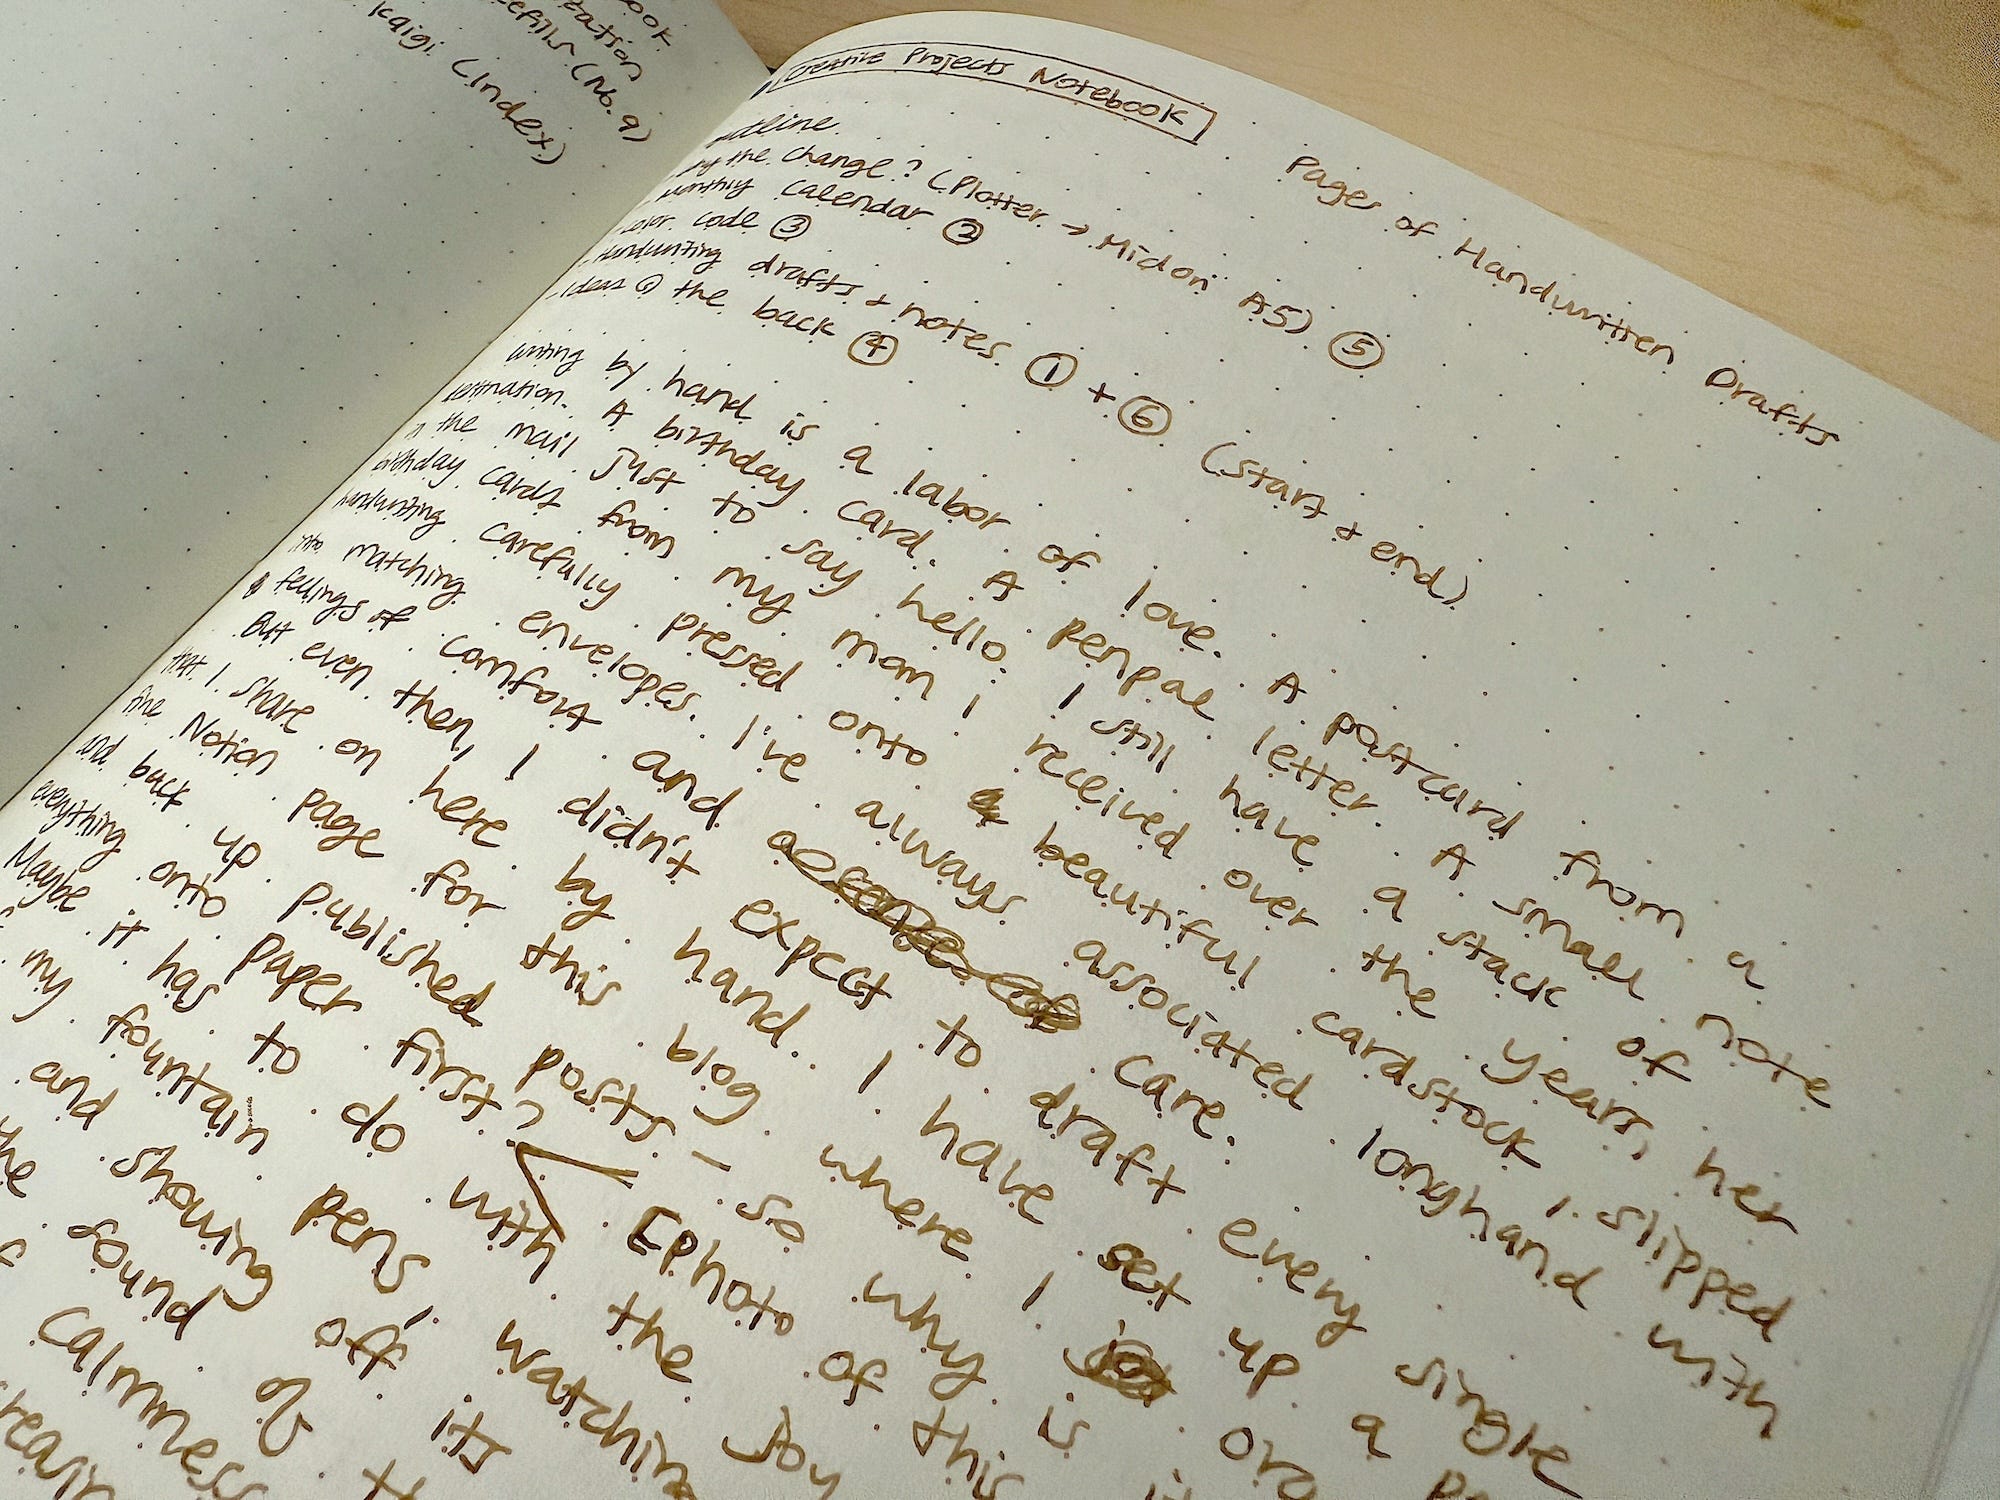 Kaigi (Index)
Creative Projects Notebook
Pages of Handwritten Drafts
outline
why the change? (Plotter → Midori A5) ⑤
monthly calendar ②
color code ③
handwriting drafts + notes ① + ⑥ (start + end)
ideas @ the back ④
writing by hand is a labor of love. A postcard from a
destination. A birthday card. A penpal letter. A small note
in the mail just to say hello. I still have a stack of
birthday cards from my mom I received over the years, her
handwriting carefully pressed onto beautiful cardstock I slipped
into matching envelopes. I've always associated longhand with
feelings of comfort and care.
But even then, I didn't expect to draft every single
that I share on here by hand. I have set up a
fine Notion page for this blog where I
and back up published posts – so why is
everything onto paper first? [Photo of this
Maybe it has to do with the joy
my fountain pens, watching
and showing off its
the sound of
calmness